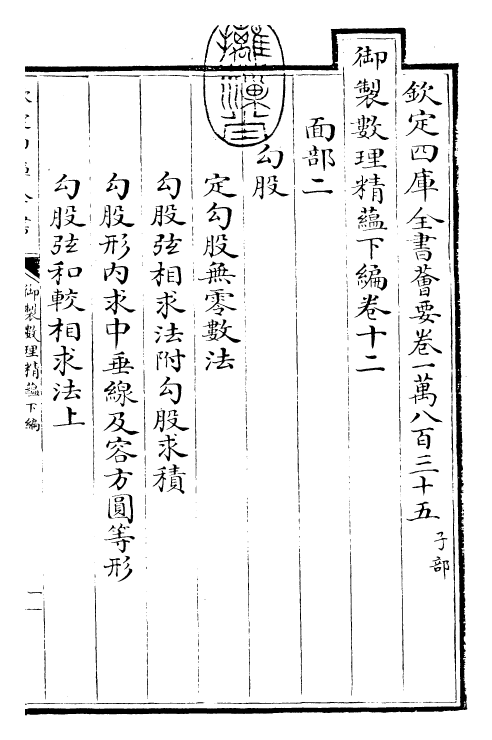 欽定四庫全書薈要卷一萬八百三十五 子部
御製數理精蘊下編卷十二
面部二
勾股
定勾股無零數法
勾股弦相求法附勾股求積
勾股形內求中垂線及容方圓等形
勾股弦和較相求法上
御製數理精蘊下編